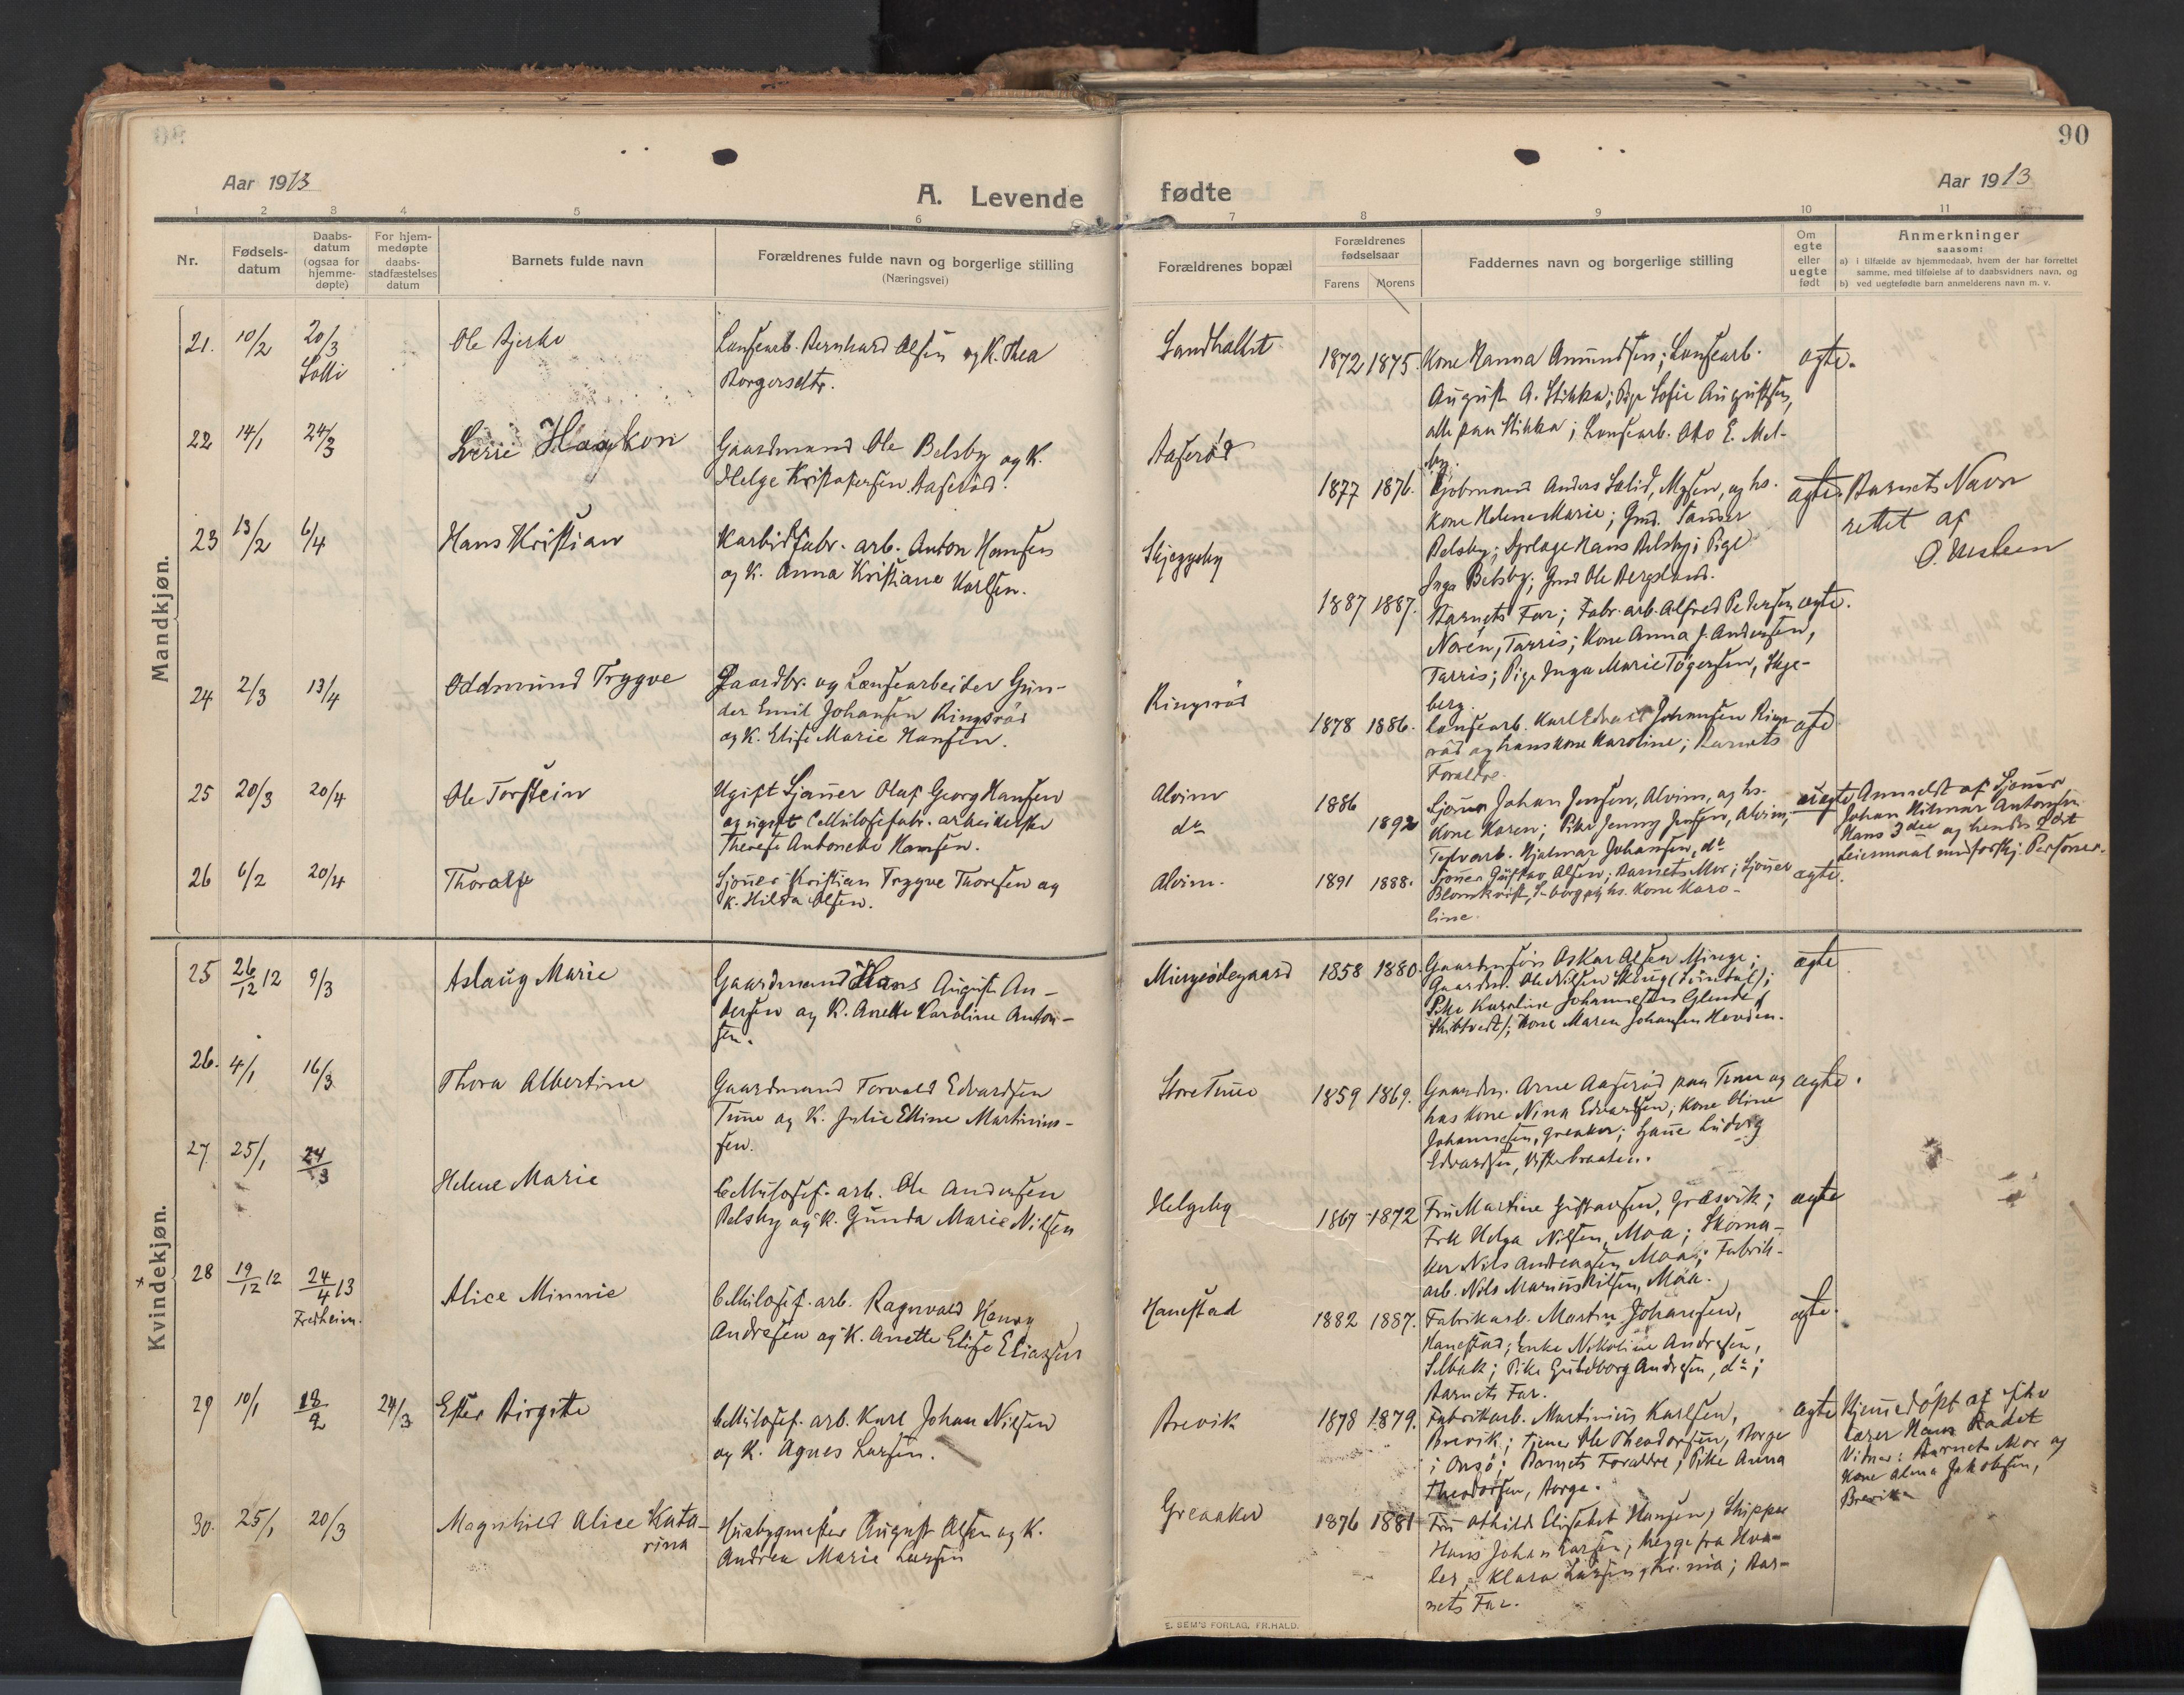 90
Aar 1913
A. Levende
fødte
Aar 1913
1 2 3 4 5 6 7 8 9 10 11
Nr.
Fødsels-
datum
Daabs-
datum
(ogsaa for
hjemme-
døpte)
For hjem-
medøpte
daabs-
stadfæstelses
datum
Barnets fulde navn
Forældrenes fulde navn og borgerlige stilling
(Næringsvei)
Forældrenes bopæl
Forældrenes
fødselsaar
Farens Morens
Faddernes navn og borgerlige stilling
Om
egte
eller
uegte
født
Anmerkninger
saasom:
a) i tilfælde av hjemmedaab, hvem der har forrettet
samme, med tilføielse af to daabsvidners navn, og
b) ved uegtefødte barn anmelderens navn m. v.
Mandkjøn.
21. 10/2 20/3
Solli
Ole Bjerke
Lænsearb. Bernhard Olsen og K. Thea
Borgersdtr.
Sandbakket
1872 1875.
Kone Hanna Amundsen; Lænsearb.
August A. Stikka; Pige Sofie Augustsen,
alle paa Stikka; Lænsearb. Otto E. Mel-
by.
ægte.
22 14/1 24/3
Sverre Haakon
Gaardmand Ole Belsby og K.
Helge Kristofersen Aaserød.
Aaserød
1877 1876.
Kjøbmand Anders Solid, Mysen, og hs.
Kone Helene Marie; Gmd.
Belsby; Hans Belsby; Pige
Inga Belsby; Gmd Ole Bergsland.
ægte.
Barnets Navn
rettet af
23 13/2 6/4
Hans Kristian
Karbidfabr. arb. Anton Hansen
og K. Anna Kristiane Karlsen.
Skjeggeby
1887 1887.
Barnets Far; Fabr. arb. Alfred Pedersen
Norén, Tarris; Kone Anna J. Andersen,
Tarris; Pige Inga Marie Tögersen, Skje-
berg.
ægte.
24 2/3 13/4
Oddmund Trygve
Gaardbr. og Lænsearbeider Gun-
der Emil Johansen Ringsrød
og K. Elise Marie Hansen.
Ringsrød
1878 1886.
Lænsearb. Karl Edvard Johansen Rings-
rød og hans Kone Karoline; Barnets
Forældre.
ægte
25 20/3 20/4
Ole Torstein
Ugift Sjømer Olaf Georg Hansen
og ugift Cellulosefabr. arbeiderske
Therese Antonette Hansen.
Alvim
do
1886
1892
Johan Jensen, Alvim, og hs.
Kone Karen; Pike Jenny Jensen, Alvim;
Hjalmar Johansen, do
uægte
Anmeldt af
Johan Hilmar Antonsen
Hans 3die og hendes
Leiermaal med forskj. Personer.
26 6/2 20/4
Thoralf
Kristian Trygve Thoresen og
K. Hilda Olsen.
Alvim.
1891 1888.
Gustav Olsen; Barnets Mor;
Blomkvist, S-borg og hs. Kone Karo-
line.
ægte.
Kvindekjøn.
25 26/12 12 9/3
Aslaug Marie
Gaardmand Hans August An-
dersen og K. Anette Karoline Anton-
sen.
Mingeødegaard
1858 1880.
Gaardm.søn Oskar Olsen Minge;
Gaardm. Ole Nilsen Skaug
Pike Karoline Johannesen Glende
Skibtvedt; Kone Maren Johansen
ægte
26. 4/1 16/3
Thora Albertine
Gaardmand Torvald Edvardsen
Tune og K. Julie Elline Martinius-
sen.
Store Tune
1859 1869.
Gaardm. Arne Aaserød paa Tune og
has Kone Nina Edvardsen; Kone Oline
Johannesen, Greaker; Ludvig
Edvardsen, Vesterbraaten.
ægte.
27. 25/1 24/3
Helene Marie
Cellulosef. arb. Ole Andersen
Belsby og K. Gunda Marie Nilsen
Helgeby
1867 1872
Fru Martine Gustavsen, Græsvik;
Frk Helga Nilsen, Moa; Skoma-
ker Nils Andreasen Moa; Fabrik-
arb. Nils Marius Nilsen, Moa.
ægte
28 19/12 12 24/4 13
Fredheim.
Alice Minnie
Cellulosef. arb. Ragnvald Henry
Andresen og K. Anette Elise Eliassen
Hanestad
1882 1887.
Fabrikarb. Martin Johansen,
Hanestad; Enke Nikoline Andresen,
Selbak; Pike Guldborg Andresen, do;
Barnets Far.
ægte.
29 10/1 18/2 24/3
Ester Birgitte
Cellulosef. arb. Karl Johan Nilsen
og K. Agnes Larsen.
Brevik
1878 1879.
Fabrikarb. Martinius Karlsen,
Brevik; Tjener Ole Theodorsen, Borge
i Onsø; Barnets Forældre; Pike Anna
Theodorsen, Borge.
ægte
Hjemedöpt af Sko
lærer Hans Kadet
Vidner: Barnets Mor og
Kone Alma Jakobsen,
Brevik
30. 25/1 20/3
Magnhild Alice Kata-
rina
Husbygmester August Olsen og K.
Andrea Marie Larsen
Greaaker
1876 1881
Fru Athilde Elisabet Hansen; Skipper
Hans Johan Larsen; begge fra Hva-
ler; Klara Larsen, Kr.nia; Bar-
nets Far.
E. SEM'S FORLAG, FR.HALD.